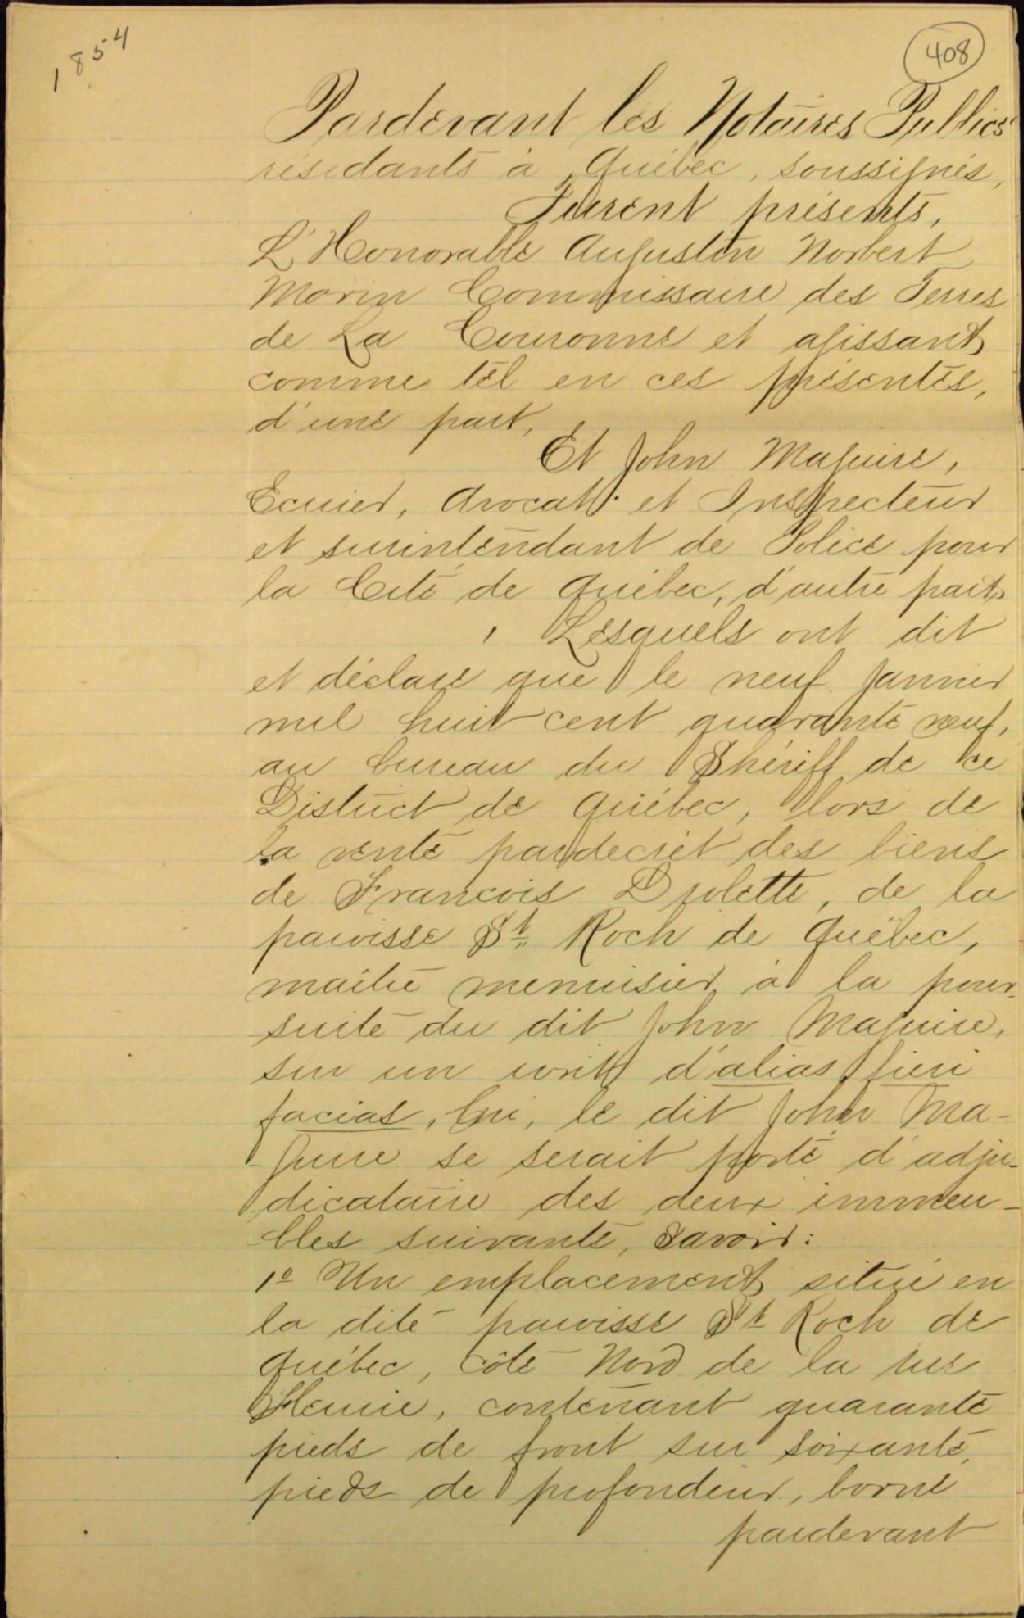 1854
408
Pardevant les Notaires Publics
résidants à Québec, soussignés,
Furent présents,
L'Honorable Augustin Norbert
Morin Commissaire des Terres
de La Couronne et agissant
comme tel en ces présentes,
d'une part,
Et John Maguire,
Ecuier, Avocat et Inspecteur
et surintendant de Police pour
la Cité de Québec, d'autre part.
Lesquels ont dit
et déclaré que le neuf Janvier
mil huit cent quarante neuf,
au bureau du Shériff de ce
District de Québec, lors de
la vente pardecret des biens
de François Drolette, de la
paroisse St. Roch de Québec,
maître menuisier à la pour-
suite du dit John Maguire,
sur un writ d'alias fieri
facias, lui, le dit John Ma-
guire se serait porté d'adju-
dicataire des deux immeu-
bles suivants, savoir:
1º Un emplacement situé en
la dite paroisse St Roch de
Québec, côté Nord de la rue
Fleurie, contenant quarante
pieds de front sur soixante,
pieds de profondeur, borné
pardevant